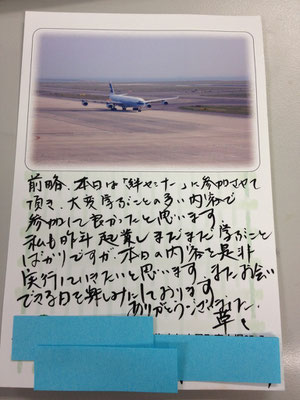 前略、本日は「絆セミナー」に参加させて
頂き、大変学ぶことの多い内容で
参加して良かったと思います。
私も昨年起業しまだまだ学ぶこと
ばかりですが、本日の内容を是非
実行していきたいと思います。またお会い
できる日を楽しみにしております。
ありがとうございました。
草々